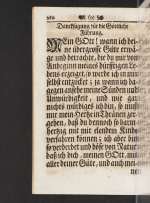 Dancksagung für die Göttliche
Führung.
MEin GOtt! wann ich dei-
ne übergrosse Güte erwä-
ge und betrachte, die du mir von
Anbeginn meines dürfftigen Le-
bens erzeiget, so werde ich in mir
selbst entzücket; ja wann ich da-
gegen ansehe meine Sünden und
Unwürdigkeit, und wie gar
nichts würdiges ich bin, so
mir mein Hertz in Thränen
gehen, daß du dennoch so
hertzig mit mir elenden Kinde
verfahren können; ich aber bin
so verderbet und böß von Natur
daß ich dich, meinen GOtt, mit
aller deiner Güte, und auch mei-